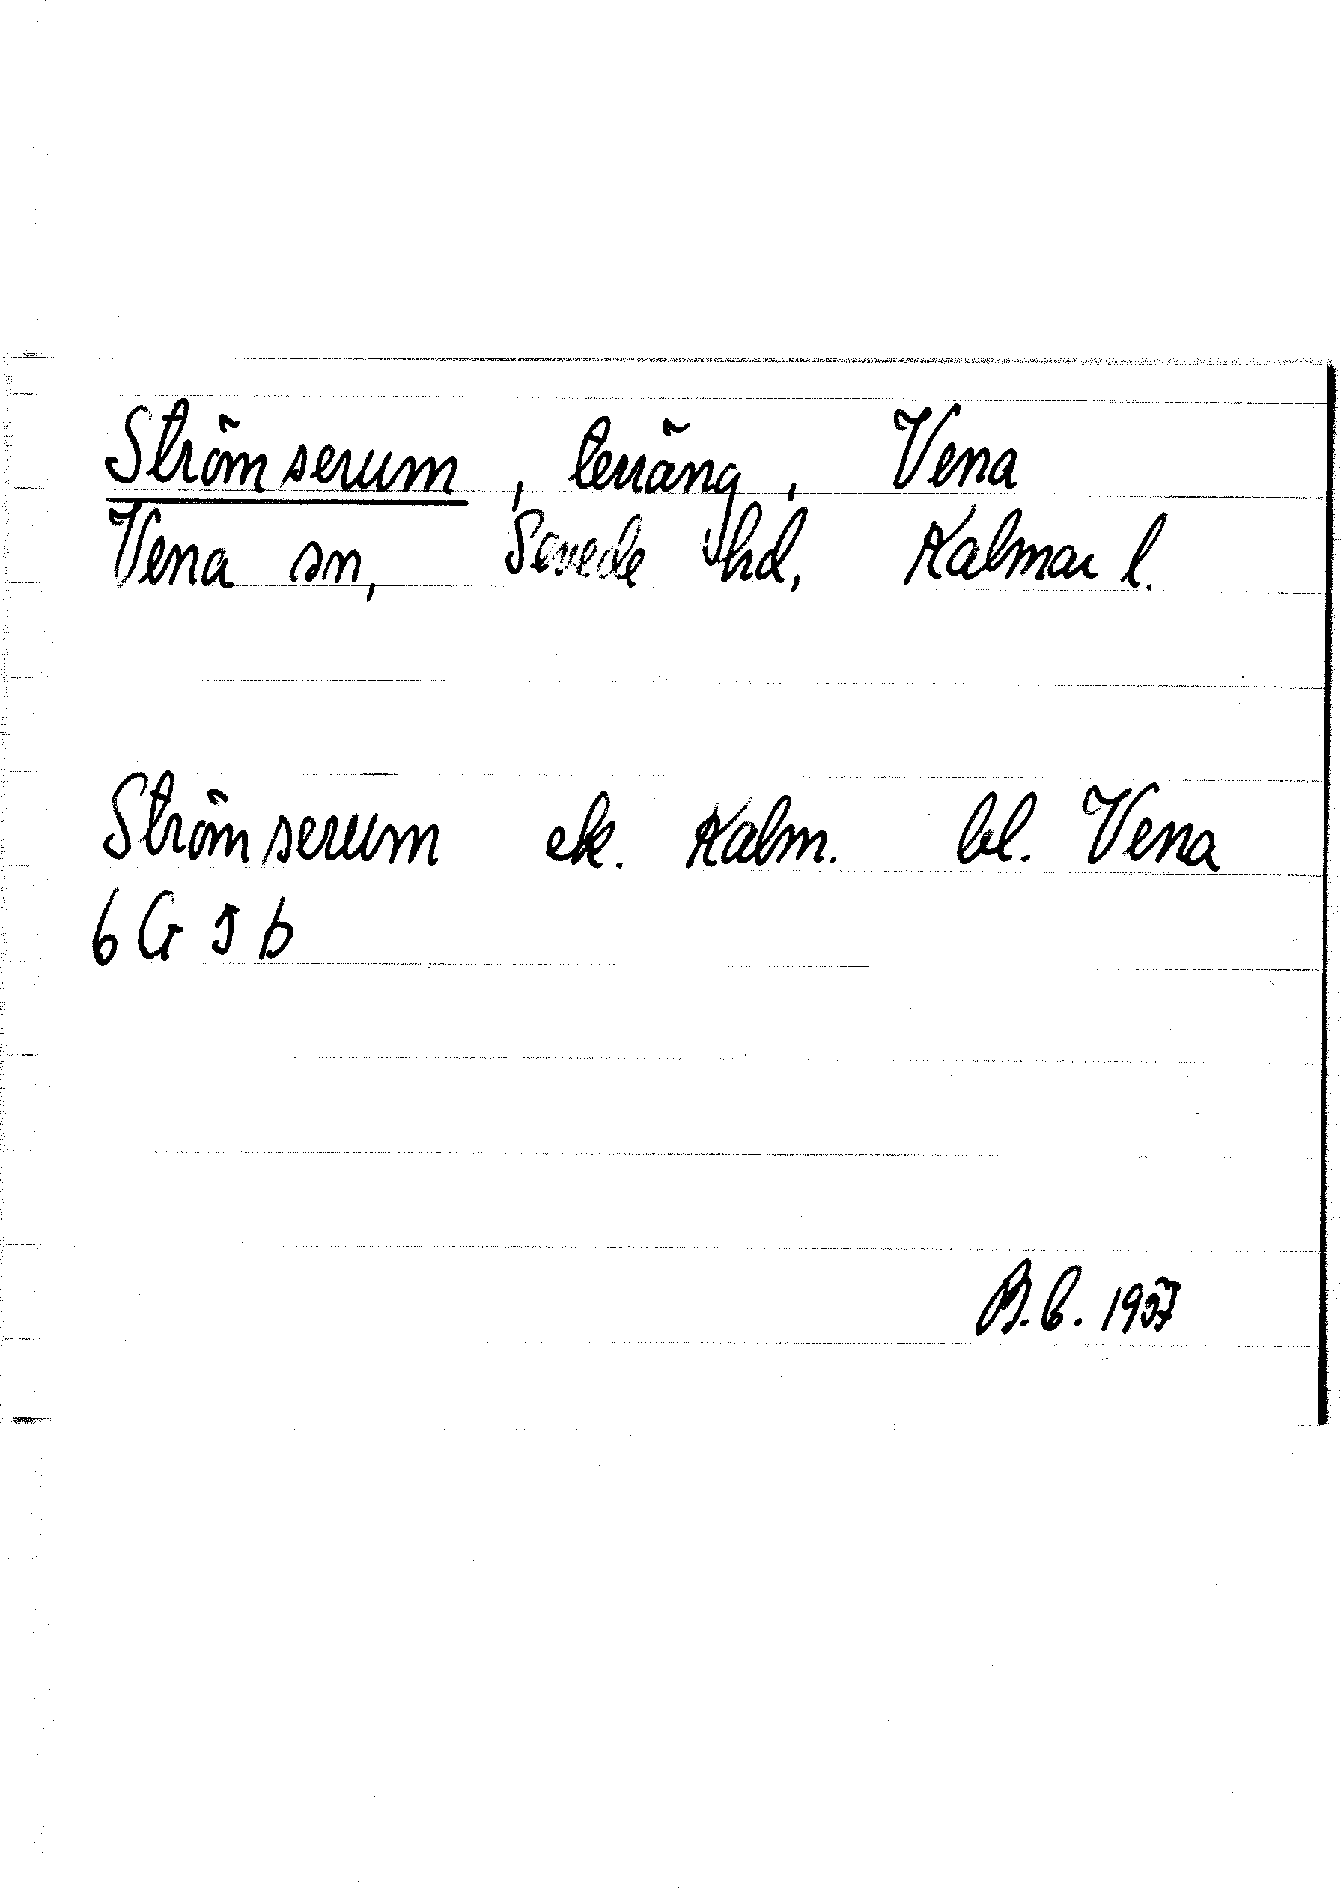 Strömserum, terräng, Vena
Vena sn, Sevede hd, Kalmar l.
Strömserum ek. Kalm. bl. Vena
6 G 5 b
B.E. 1957